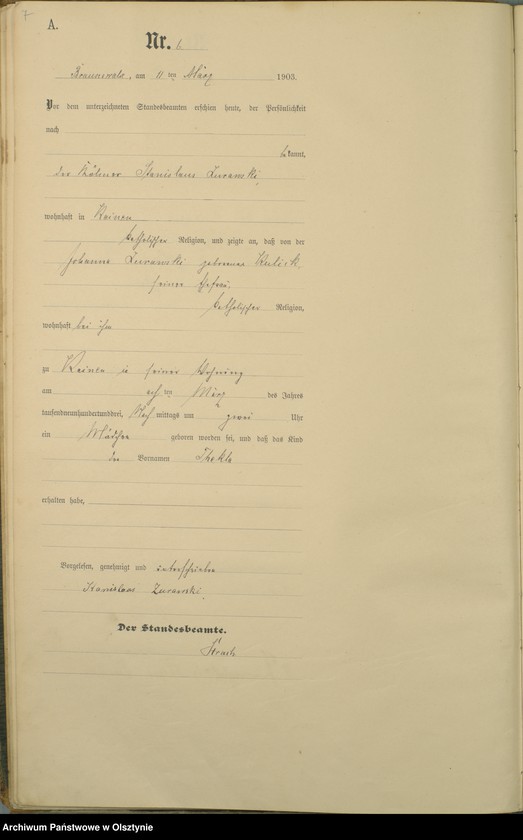 7
A.
Nr. 6
Braunswalde, am 11 ten März 1903.
Vor dem unterzeichneten Standesbeamten erschien heute, der Persönlichkeit
nach
bekannt,
der Kölmer Stanislaus Zurawski,
wohnhaft in
katholischer Religion, und zeigte an, daß von der
Johanna Zurawski geborenen Kulick,
seiner Ehefrau
katholischer Religion,
wohnhaft bei ihm
zu in seiner Wohnung
am ten März des Jahres
tausendneunhundertunddrei, Nachmittags um zwei Uhr
ein Mädchen geboren worden sei, und daß das Kind
den Vornamen Thekla
erhalten habe,
Vorgelesen, genehmigt und unterschrieben
Stanislaus Zurawski.
Der Standesbeamte.
Archiwum Państwowe w Olsztynie